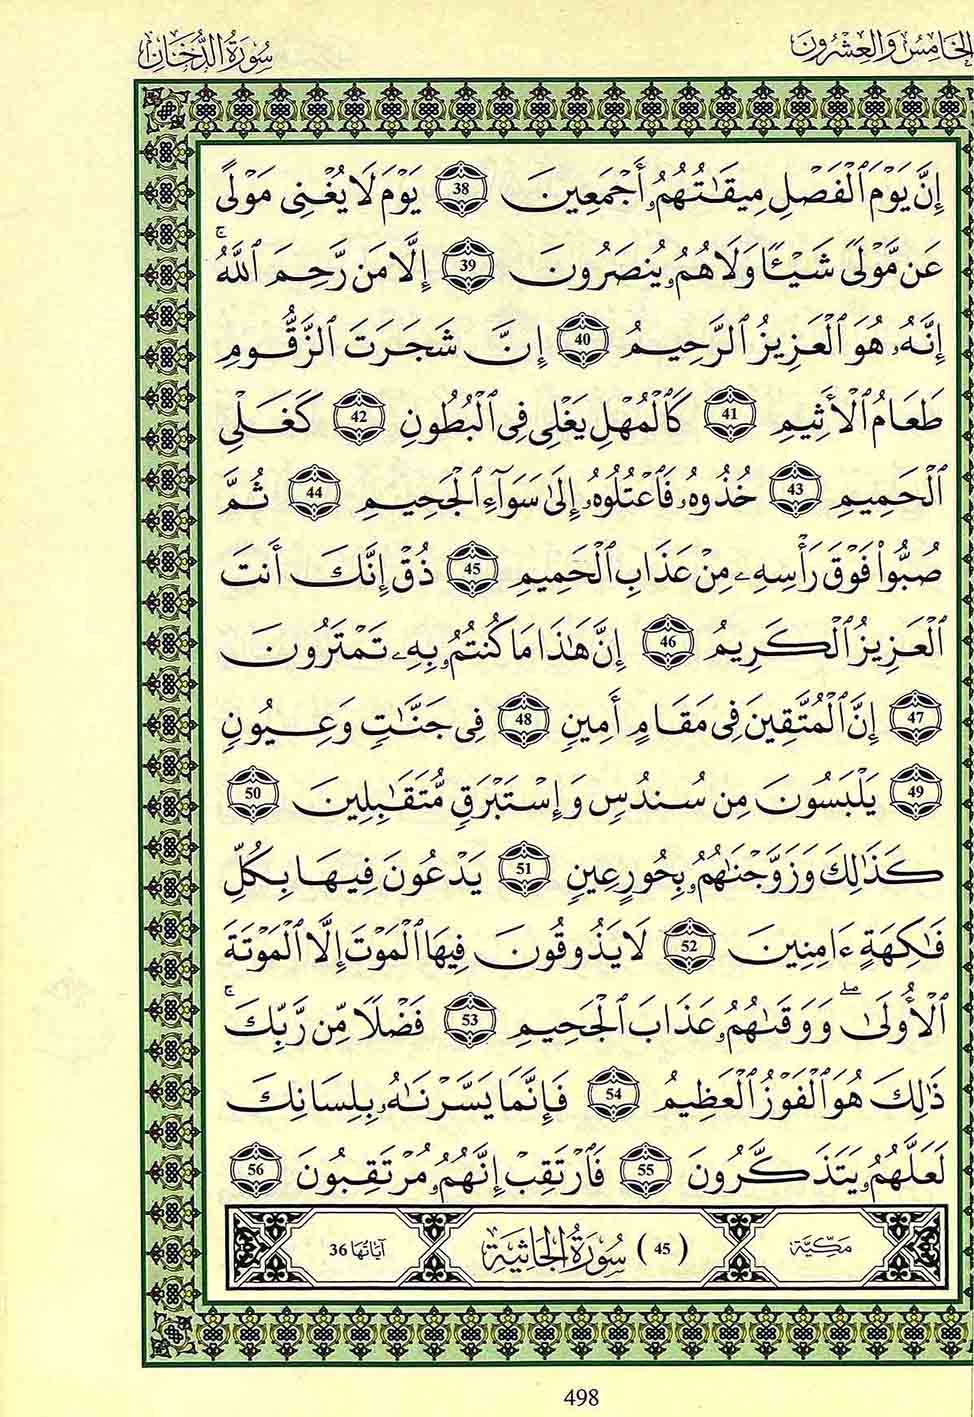 الخامس والعشرون
سُورَةُ الدُّخَانِ
إِنَّ يَوْمَ ٱلْفَصْلِ مِيقَٰتُهُمُۥ أَجْمَعِينَ 38 يَوْمَ لَا يُغْنِى مَوْلًى
عَن مَّوْلًى شَيْـًٔا وَلَا هُمُۥ يُنصَرُونَ 39 إِلَّا مَن رَّحِمَ ٱللَّهُۚ
إِنَّهُۥ هُوَ ٱلْعَزِيزُ ٱلرَّحِيمُ 40 إِنَّ شَجَرَتَ ٱلزَّقُّومِ
طَعَامُ ٱلْأَثِيمِ 41 كَٱلْمُهْلِ يَغْلِى فِى ٱلْبُطُونِ 42 كَغَلْىِ
ٱلْحَمِيمِ 43 خُذُوهُۥ فَٱعْتُلُوهُۥ إِلَىٰ سَوَآءِ ٱلْجَحِيمِ 44 ثُمَّ
صُبُّوا۟ فَوْقَ رَأْسِهِۦ مِنْ عَذَابِ ٱلْحَمِيمِ 45 ذُقْ إِنَّكَ أَنتَ
ٱلْعَزِيزُ ٱلْكَرِيمُ 46 إِنَّ هَٰذَا مَا كُنتُمُۥ بِهِۦ تَمْتَرُونَ
47 إِنَّ ٱلْمُتَّقِينَ فِى مَقَامٍ أَمِينٍ 48 فِى جَنَّٰتٍ وَعِيُونٍ
49 يَلْبَسُونَ مِن سُندُسٍ وَإِسْتَبْرَقٍ مُّتَقَٰبِلِينَ 50
كَذَٰلِكَ وَزَوَّجْنَٰهُمُۥ بِحُورٍ عِينٍ 51 يَدْعُونَ فِيهَا بِكُلِّ
فَٰكِهَةٍ ءَامِنِينَ 52 لَا يَذُوقُونَ فِيهَا ٱلْمَوْتَ إِلَّا ٱلْمَوْتَةَ
ٱلْأُولَىٰۖ وَوَقَىٰهُمُۥ عَذَابَ ٱلْجَحِيمِ 53 فَضْلًا مِّن رَّبِّكَۚ
ذَٰلِكَ هُوَ ٱلْفَوْزُ ٱلْعَظِيمُ 54 فَإِنَّمَا يَسَّرْنَٰهُۥ بِلِسَانِكَ
لَعَلَّهُمُۥ يَتَذَكَّرُونَ 55 فَٱرْتَقِبْ إِنَّهُمُۥ مُرْتَقِبُونَ 56
مَكِّيَّة (45) سُورَةُ الجَاثِيَةِ آيَاتُهَا 36
498